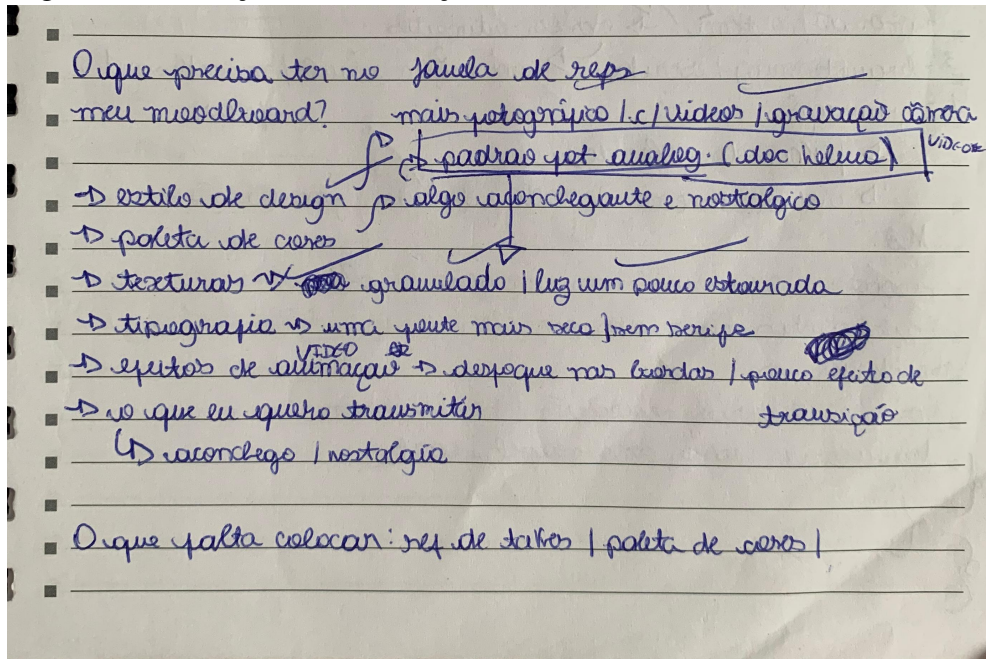 O que precisa ter no janela de refs
meu moodboard? mais fotográfico | c/ videos | gravação câmera
padrao fot analog. (doc helena) VIDEOS
→ estilo de design → algo aconchegante e nostálgico
→ paleta de cores
→ texturas → granulado | luz um pouco estourada
→ tipografia → uma fonte mais seca | sem serife
→ efeitos de animaçao VIDEO → desfoque nas bordas | pouco efeito de
→ o que eu quero transmitir transição
↳ aconchego | nostalgia
O que falta colocar: ref de | paleta de cores |